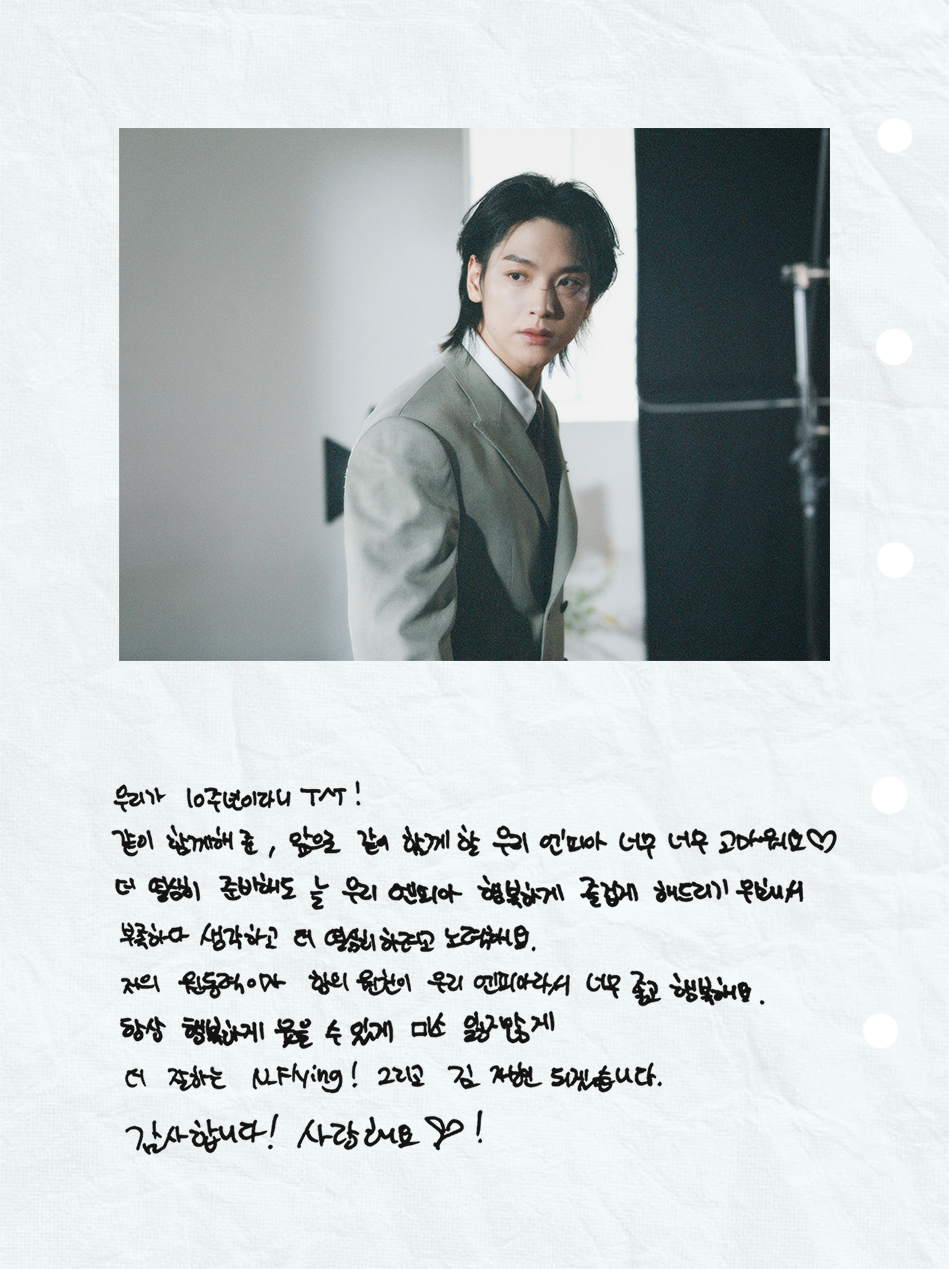 우리가 10주년이라니 TAT!
같이 함께해준, 앞으로 같이 함께 할 우리 엔피아 너무 너무 고마워요♡
더 열심히 준비해도 늘 우리 엔피아 행복하게 즐겁게 해드리기 위해서
부족하다 생각하고 더 열심히 하려고 노력해요.
저의 원동력이자 힘의 원천이 우리 엔피아라서 너무 좋고 행복해요.
항상 행복하게 웃을 수 있게 미소 잃지않게
더 잘하는 N.Flying! 그리고 김 재현 되겠습니다.
감사합니다! 사랑해요♡!